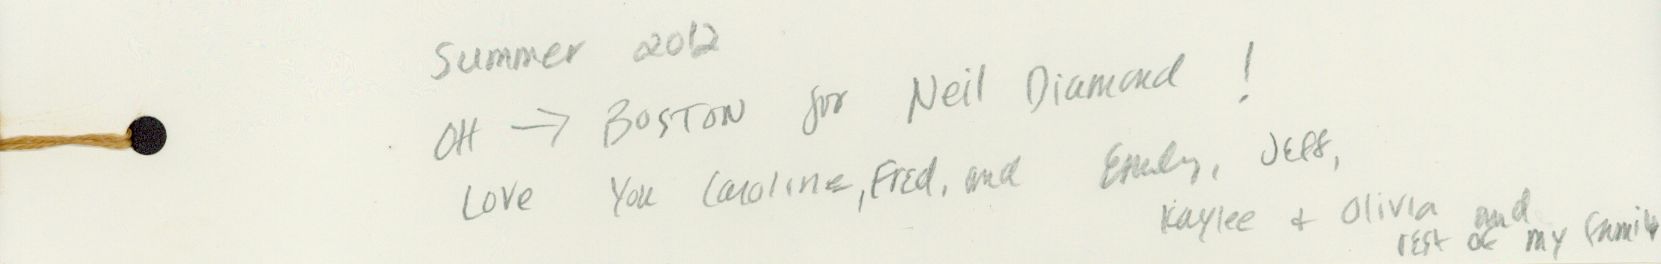 Summer 2012
OH → BOSTON for Neil Diamond !
Love You Caroline, Fred, and Emily, Jeff,
Kaylee + Olivia and
rest of my family